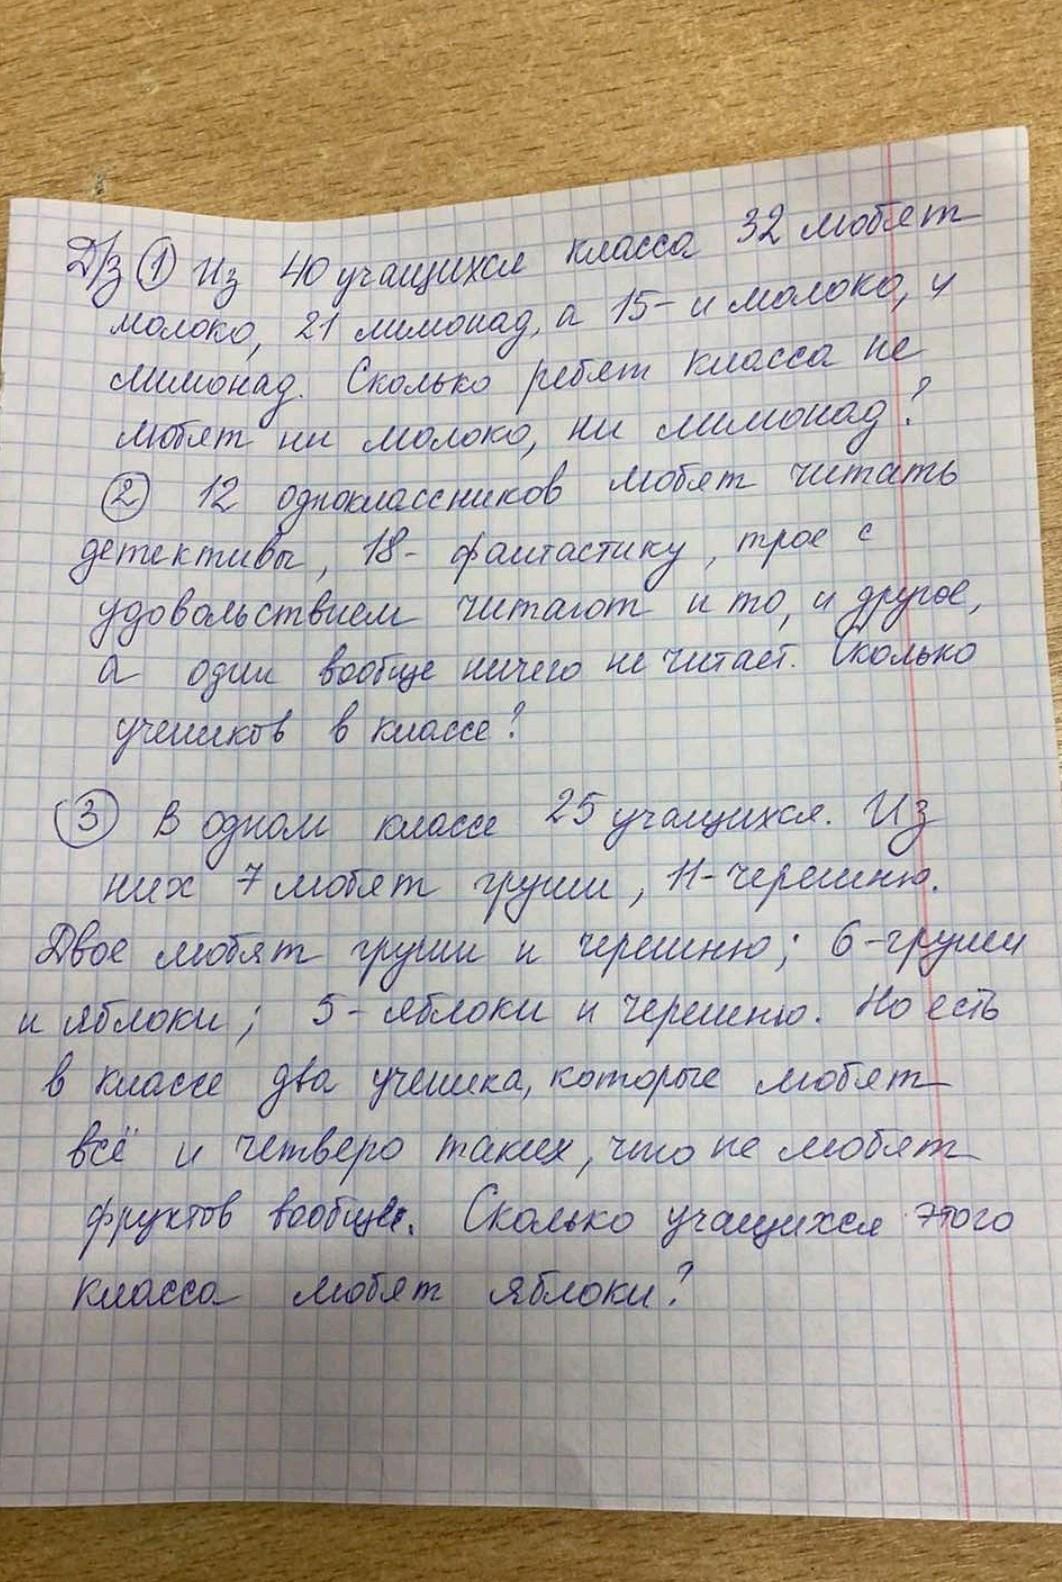 Д/з ① Из 40 учащихся класса 32 любят
молоко, 21 лимонад, а 15- и молоко, и
лимонад. Сколько ребят класса не
любят ни молоко, ни лимонад?
② 12 одноклассников любят читать
детективы, 18- фантастику, трое с
удовольствием читают и то, и другое,
а один вообще ничего не читает. Сколько
учеников в классе?
③ В одном классе 25 учащихся. Из
них 7 любят груши, 11- черешню.
Двое любят груши и черешню; 6-груши
и яблоки; 5- яблоки и черешню. Но есть
в классе два ученика, которые любят
всё и четверо таких, что не любят
фруктов вообще. Сколько учащихся этого
класса любят яблоки?